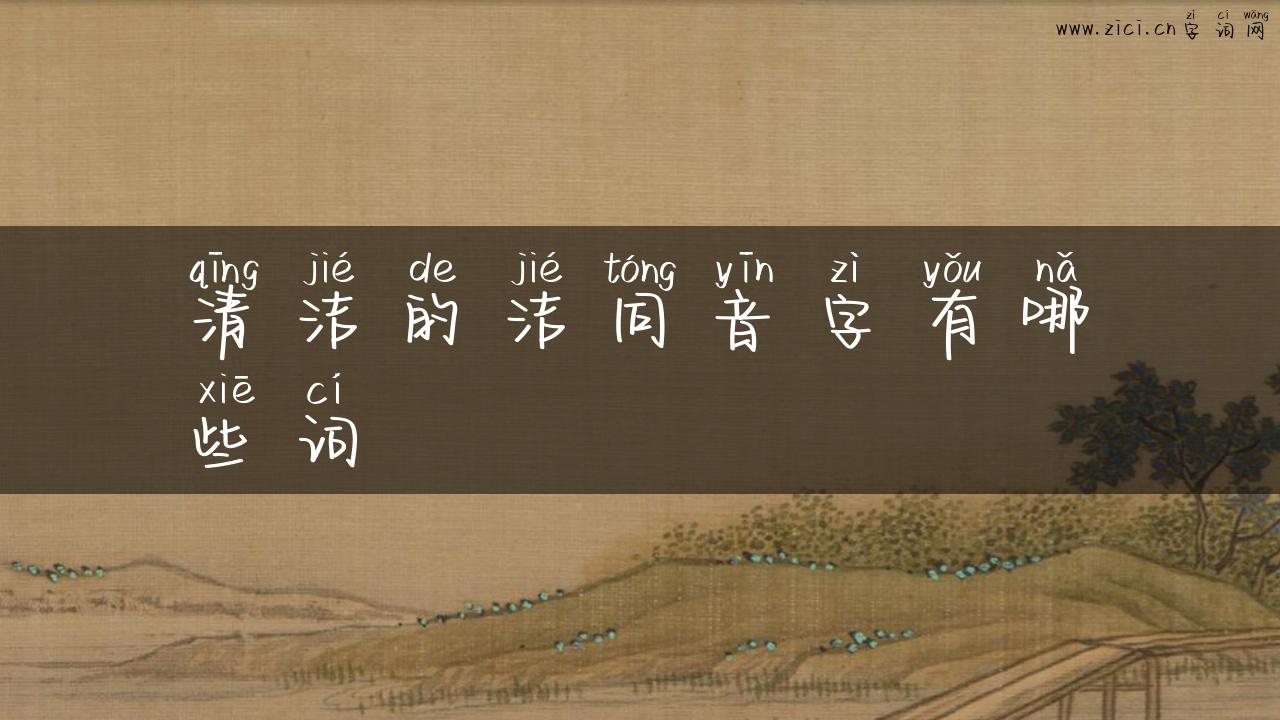 zì cí wǎng
www.zici.cn字词网
qīng jié de jié tóng yīn zì yǒu nǎ
清洁的洁同音字有哪
xiē cí
些词